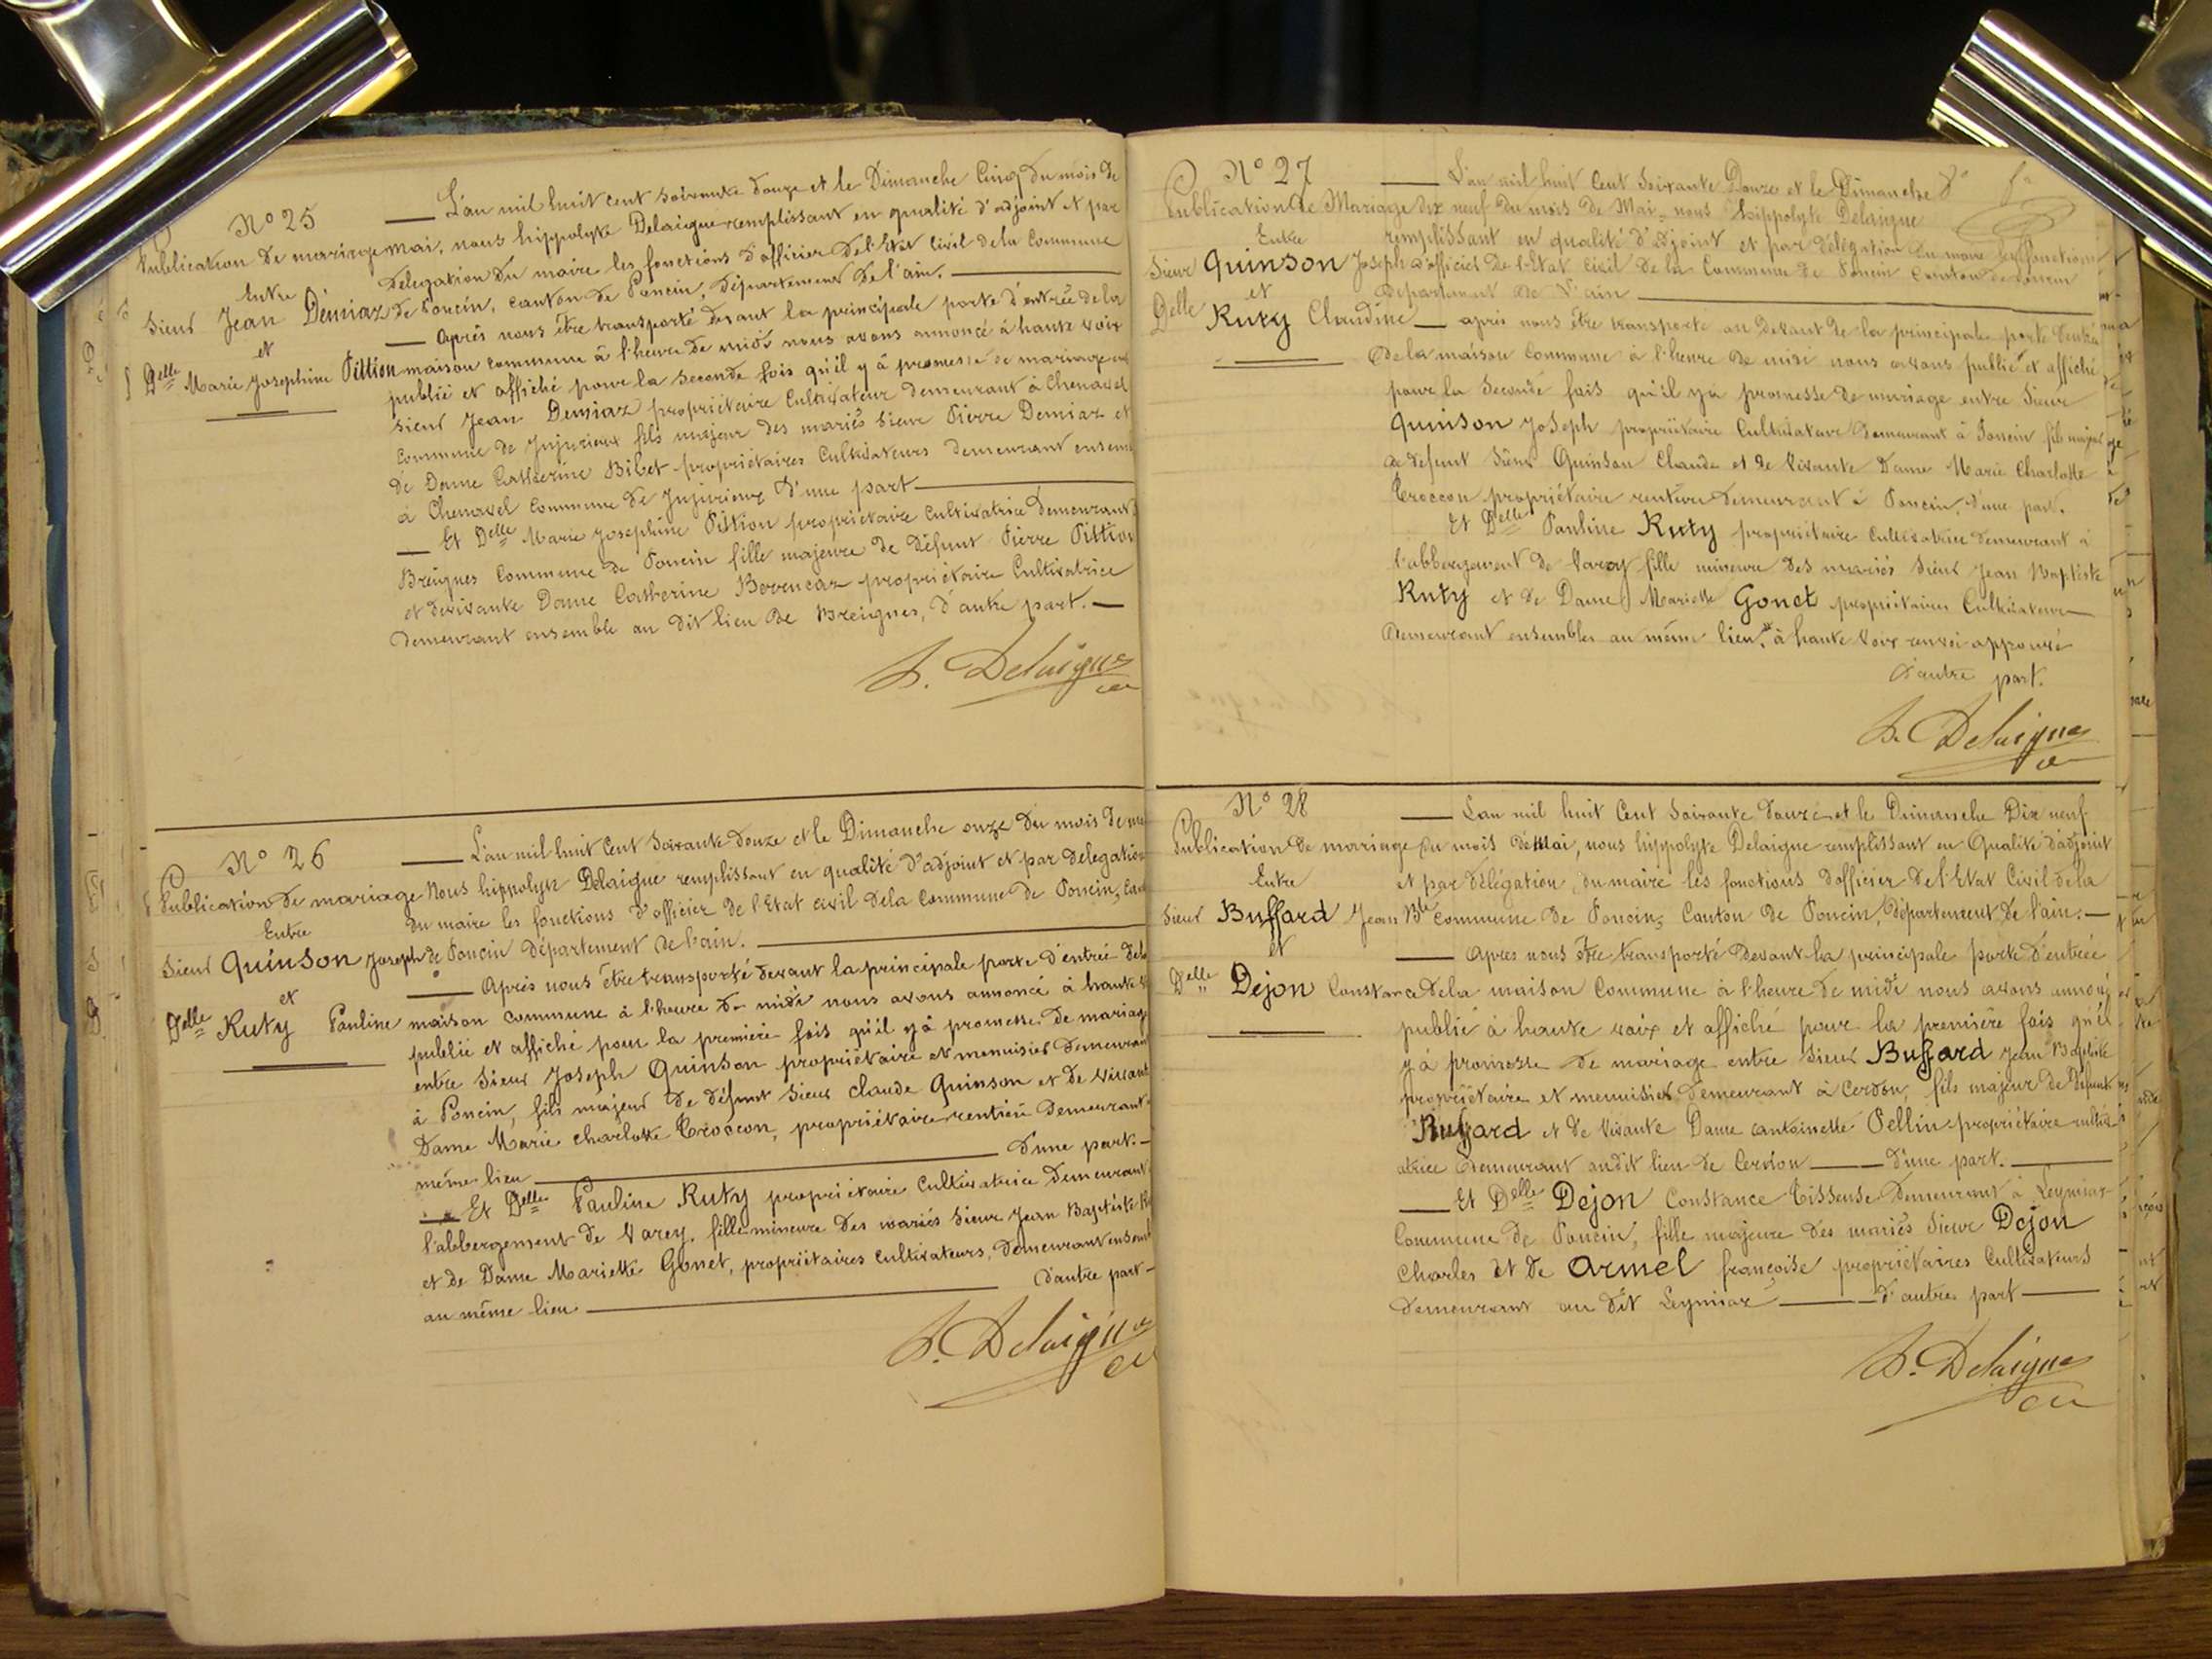 N° 25
Publication de mariage
Entre
Sieur Jean Demiaz
et
Delle Marie Josephine Pittion
L'an mil huit cent soixante douze et le Dimanche Cinq du mois de
mai, nous hippolyte Delaigue remplissant en qualité d'adjoint et par
délégation du maire les fonctions d'officier de l'Etat Civil de la Commune
de Poncin, canton de Poncin, département de l'ain.
Après nous être transporté devant la principale porte d'entrée de la
maison commune à l'heure de midi nous avons annoncé à haute voix
publié et affiché pour la seconde fois qu'il y à promesse de mariage
sieur Jean Demiaz propriétaire Cultivateur demeurant à Chenavel
commune de Jujurieux fils majeur des mariés sieur Pierre Demiaz et
de Dame Catherine Bibet propriétaires Cultivateurs demeurant
à Chenavel commune de Jujurieux d'une part
Et Delle Marie Josephine Pittion propriétaire cultivatrice demeurant
Breignes Commune de Poncin fille majeure de défunt Pierre Pittion
et de vivante Dame Catherine propriétaire Cultivatrice
demeurant ensemble au dit lieu de Breignes, d'autre part.
h. Delaigue
N° 26
Publication de mariage
Entre
Sieur Quinson Joseph
et
Delle Ruty Pauline
L'an mil huit Cent soixante douze et le Dimanche onze du mois de
Nous hippolyte Delaigue remplissant en qualité d'adjoint et par delegation
du maire les fonctions d'officier de l'Etat civil dela Commune de Poncin,
de Poncin département de l'ain.
Après nous être transporté devant la principale porte d'entrée
maison commune à l'heure de midi nous avons annoncé à haute
publié et affiché pour la première fois qu'il y à promesse de mariage
entre sieur Joseph Quinson propriétaire et menuisier demeurant
à Poncin, fils majeur de défunt sieur claude Quinson et de vivante
Dame Marie charlotte Croccon, propriétaire rentière demeurant
même lieu d'une part.
Et Delle Pauline Ruty propriétaire Cultivatrice demeurant
l'abbergement de Varey, fille mineure des mariés sieur Jean Baptiste
et de Dame Mariette Gonet, propriétaires cultivateurs, demeurant
au même lieu d'autre part
h. Delaigue
N° 27
Publication de Mariage
Entre
Sieur Quinson Joseph
et
Delle Ruty Claudine
L'an mil huit Cent soixante Douze et le Dimanche
dix neuf du mois de Mai nous hippolyte Delaigue
remplissant en qualité d'adjoint et par délégation du maire les fonctions
d'officier de l'Etat civil de la Commune de Poncin Canton de Poncin
Departement de l'ain
après nous être transporté au devant de la principale porte
de la maison Commune à l'heure de midi nous avons publié et affiché
pour la seconde fois qu'il y a promesse de mariage entre sieur
Quinson Joseph propriétaire Cultivateur demeurant à Poncin fils majeur
de défunt Sieur Quinson Claude et de vivante Dame Marie Charlotte
Croccon propriétaire rentière demeurant à Poncin, d'une part.
Et Delle Pauline Ruty propriétaire Cultivatrice demeurant à
l'abbergement de Varey fille mineure des mariés sieur Jean Baptiste
Ruty et de Dame Mariette Gonet propriétaires Cultivateurs
demeurant ensembles au même lieu, à haute voix renvoi approuvé
d'autre part.
h. Delaigue
N° 28
Publication de mariage
Entre
Sieur Buffard Jean Bte
et
Delle Dejon Constance
L'an mil huit Cent Soixante douze et le Dimanche Dix neuf
du mois de Mai, nous hippolyte Delaigue remplissant en Qualité d'adjoint
et par délégation du maire les fonctions d'officier de l'Etat Civil de la
Commune de Poncin, Canton de Poncin, département de l'ain.
Après nous être transporté Devant la principale porte d'entrée
de la maison Commune à l'heure de midi nous avons
publié à haute voix et affiché pour la première fois qu'il
y à promesse de mariage entre sieur Buffard Jean Baptiste
propriétaire et menuisier demeurant à Cerdon, fils majeur de défunt
Buffard et de vivante Dame antoinette Pellin propriétaire
demeurant audit lieu de Cerdon d'une part.
Et Delle Dejon Constance Tisseuse demeurant à Leymiaz
Commune de Poncin, fille majeure des mariés sieur Dejon
Charles et de Armel françoise propriétaires Cultivateurs
demeurant au dit Leymiaz d'autre part
h. Delaigue